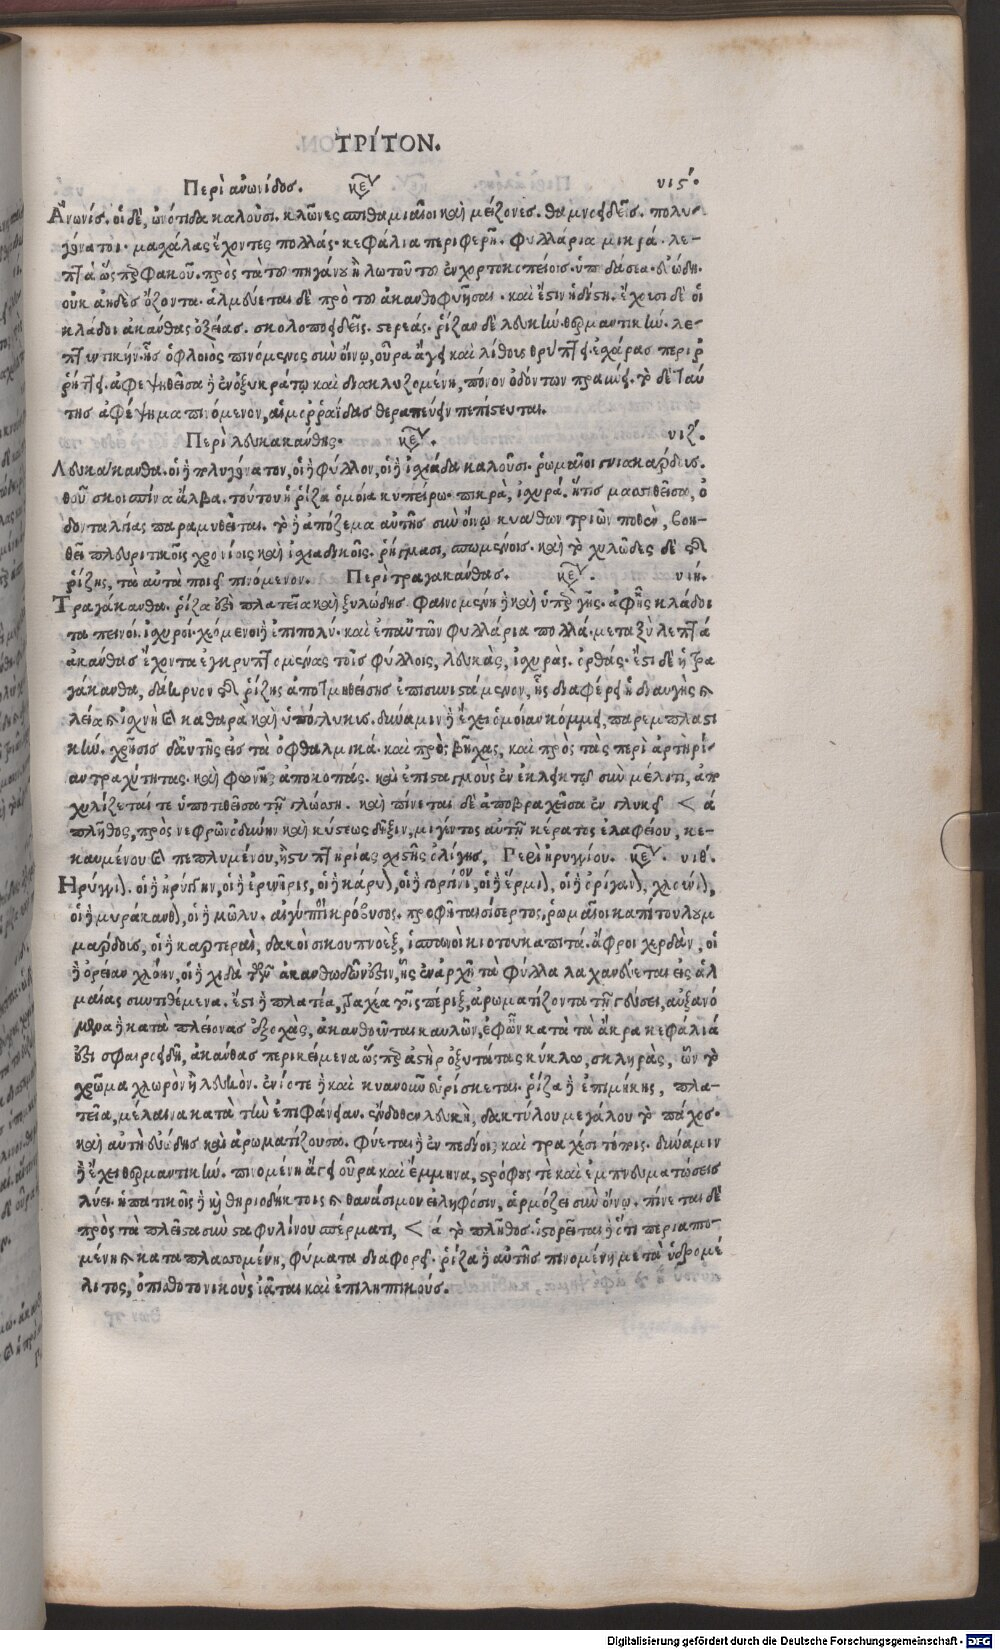 ΤΡΊΤΟΝ.
Περὶ ἀνωνίδος. κεφ νιϛ΄.
Ἄνωνίς. οἱ δὲ, ὠνότιδα καλοῦσι. κλῶνες σπιθαμιαῖοι καὶ μείζονες. θαμνοειδεῖς. πολυ-
γόνατοι. μασχάλας ἔχοντες πολλάς. κεφάλια περιφερῆ. φυλλάρια μικρά. λε-
πτὰ ὥσπερ φακοῦ. πρὸς τὰ τοῦ πηγάνου ἢ λωτοῦ τοῦ ἐν χορτοκοπείοις. ὑπόδασεα. εὐώδη.
οὐκ ἀηδὲς ὄζοντα. ἁλμεύεται δὲ πρὸ τοῦ ἀκανθοφυῆσαι. καὶ ἔστιν ἡδίστη. ἔχουσι δὲ οἱ
κλάδοι ἀκάνθας ὀξείας. σκολοποειδεῖς. στερεάς. ῥίζαν δὲ λευκὴν. θερμαντικὴν. λε-
πτυντικήν. ἧς ὁ φλοιὸς πινόμενος σὺν οἴνῳ, οὖρα ἄγει καὶ λίθους θρύπτει. ἐσχάρας περιρ
ρήττει. ἀφεψηθεῖσα ἡ ἐν ὀξυκράτῳ καὶ διακλυζομένη, πόνον ὀδόντων πραΰνει. τὸ δὲ ταύ
της ἀφέψημα πινόμενον, αἱμορῥαΐδας θεραπεύειν πεπίστευται.
Περὶ λευκακάνθης. κεφ. νιζ΄.
Λευκάκανθα. οἱ ἢ πολυγόνατον, οἱ ἢ φύλλον, οἱ ἢ ἰσχιάδα καλοῦσι. ῥωμαῖοι γνιακαρδους.
θοῦσκοι σπίνα ἄλβα. τούτου ἡ ῥίζα ὁμοία κυπείρῳ. πικρὰ, ἰσχυρά. ἥτις μασσηθεῖσα, ὀ
δονταλγίας παραμυθεῖται. τὸ ἢ ἀπόζεμα αὐτῆς σὺν οἴνῳ κυάθων τριῶν ποθὲν, βοη-
θεῖ πλευριτικοῖς χρονίοις καὶ ἰσχιαδικοῖς. ῥήγμασι, σπωμένοις. καὶ τὸ χυλῶδες δὲ τῆς
ῥίζης, τὰ αὐτὰ ποιεῖ πινόμενον. Περὶ τραγακάνθας. κεφ. νιή.
Τραγάκανθα. ῥίζα ἐστὶ πλατεῖα καὶ ξυλώδης φαινομένη ἢ καὶ ὑπὲρ γῆς. ἀφ' ἧς κλάδοι
ταπεινοί. ἰσχυροί. χεόμενοι ἢ ἐπιπολύ. καὶ ἐπ' αὐτῶν φυλλάρια πολλά. μεταξὺ λεπτὰ
ἀκάνθας ἔχοντα ἐγκρυπτομένας τοῖς φύλλοις, λευκὰς, ἰσχυρὰς. ὀρθάς. ἔστι δὲ ἡ τρα
γάκανθα, δάκρυον τῆς ῥίζης ἀποτμηθείσης ἐπισυνιστάμενον, ἧς διαφέρει ἡ διαυγὴς καὶ
λεία καὶ ἰσχνὴ καὶ καθαρὰ καὶ ὑπόγλυκις. δύναμιν ἢ ἔχει ὁμοίαν κόμμει, παρεμπλαστι
κὴν. χρῆσις δ' αὐτῆς εἰς τὰ ὀφθαλμικά. καὶ πρὸς βῆχας, καὶ πρὸς τὰς περὶ ἀρτηρί-
αν τραχύτητας. καὶ φωνῆς ἀποκοπάς. καὶ ἐπισταγμοὺς ἐν ἐκλεικτῷ σὺν μέλιτι, ἀπο
χυλίζεταί τε ὑποτιθεῖσα τῇ γλώσσῃ. καὶ πίνεται δὲ ἀποβραχεῖσα ἐν γλυκεῖ < ά
πλῆθος, πρὸς νεφρῶν ὀδύνην καὶ κύστεως δῆξιν, μιγέντος αὐτῇ κέρατος ἐλαφείου, κε-
καυμένου καὶ πεπλυμένου, ἢ στυπτηρίας σχιστῆς ὀλίγης, Περὶ ἠρυγγίου. κεφ. νιθ΄.
Ηρύγγιον. οἱ ἢ ἠρύγγην, οἱ ἢ ἐρυνηρις, οἱ ἢ κάρυον, οἱ ἢ γοργίνιον, οἱ ἢ ἕρμιον, οἱ ἢ ὀρίγανον, χλουνίον,
οἱ ἢ μυράκανθον, οἱ ἢ μῶλυ. αἰγύπτιοι κρόβυσος. προφῆται σίσερτος, ῥωμαῖοι καπίτουλουμ
μαρδους, οἱ ἢ καρτεραι, δακοὶ σικουπνοὲξ, ἱσπανοὶ κιοτουκαπιτά. ἄφροι χερδὰν, οἱ
ἢ ὄρειαν χλόην, οἱ ἢ χιδὰ τῶν ἀκανθωδῶν ἐστιν, ἧς ἐν ἀρχῇ τὰ φύλλα λαχανεύεται εἰς ἁλ
μαίας συντιθέμενα. ἔστι ἢ πλατέα, τραχέα τοῖς πέριξ, ἀρωματίζοντα τῇ γεύσει, αὐξανό
μενα ἢ κατὰ πλείονας ἐξοχὰς, ἀκανθοῦται καυλῶν, ἐφ' ὧν κατὰ τὰ ἄκρα κεφάλιά
ἐστι σφαιροειδῆ, ἀκάνθας περικείμενα ὥσπερ ἀστὴρ ὀξυτάτας κύκλῳ, σκληρὰς, ὧν τὸ
χρῶμα χλωρὸν ἢ λευκὸν. ἐνίοτε ἢ καὶ κυανοῦν εὑρίσκεται. ῥίζα ἢ ἐπιμήκης, πλα-
τεῖα, μέλαινα κατὰ τὴν ἐπιφάνειαν. ἔνδοθεν λευκὴ, δακτύλου μεγάλου τὸ πάχος.
καὶ αὐτὴ εὐώδης καὶ ἀρωματίζουσα. φύεται ἢ ἐν πεδίοις καὶ τραχέσι τόποις. δύναμιν
ἢ ἔχει θερμαντικὴν. πινομένη ἄγει οὖρα καὶ ἔμμηνα, στρόφους τὲ καὶ ἐμπνευματώσεις
λύει. ἡπατικοῖς ἢ καὶ θηριοδήκτοις καὶ θανάσιμον εἰληφόσιν, ἁρμόζει σὺν οἴνῳ. πίνεται δὲ
πρὸς τὰ πλεῖστα σὺν σταφυλίνου σπέρματι, < ά τὸ πλῆθος. ἱστορεῖται ἢ ὅτι περιαπτο-
μένη καὶ καταπλασσομένη, φύματα διαφορεῖ. ῥίζα ἢ αὐτῆς πινομένη μετὰ ὑδρομέ
λιτος, ὀπισθοτονικοὺς ἰᾶται καὶ ἐπιληπτικούς.
Digitalisierung gefördert durch die Deutsche Forschungsgemeinschaft - DFG